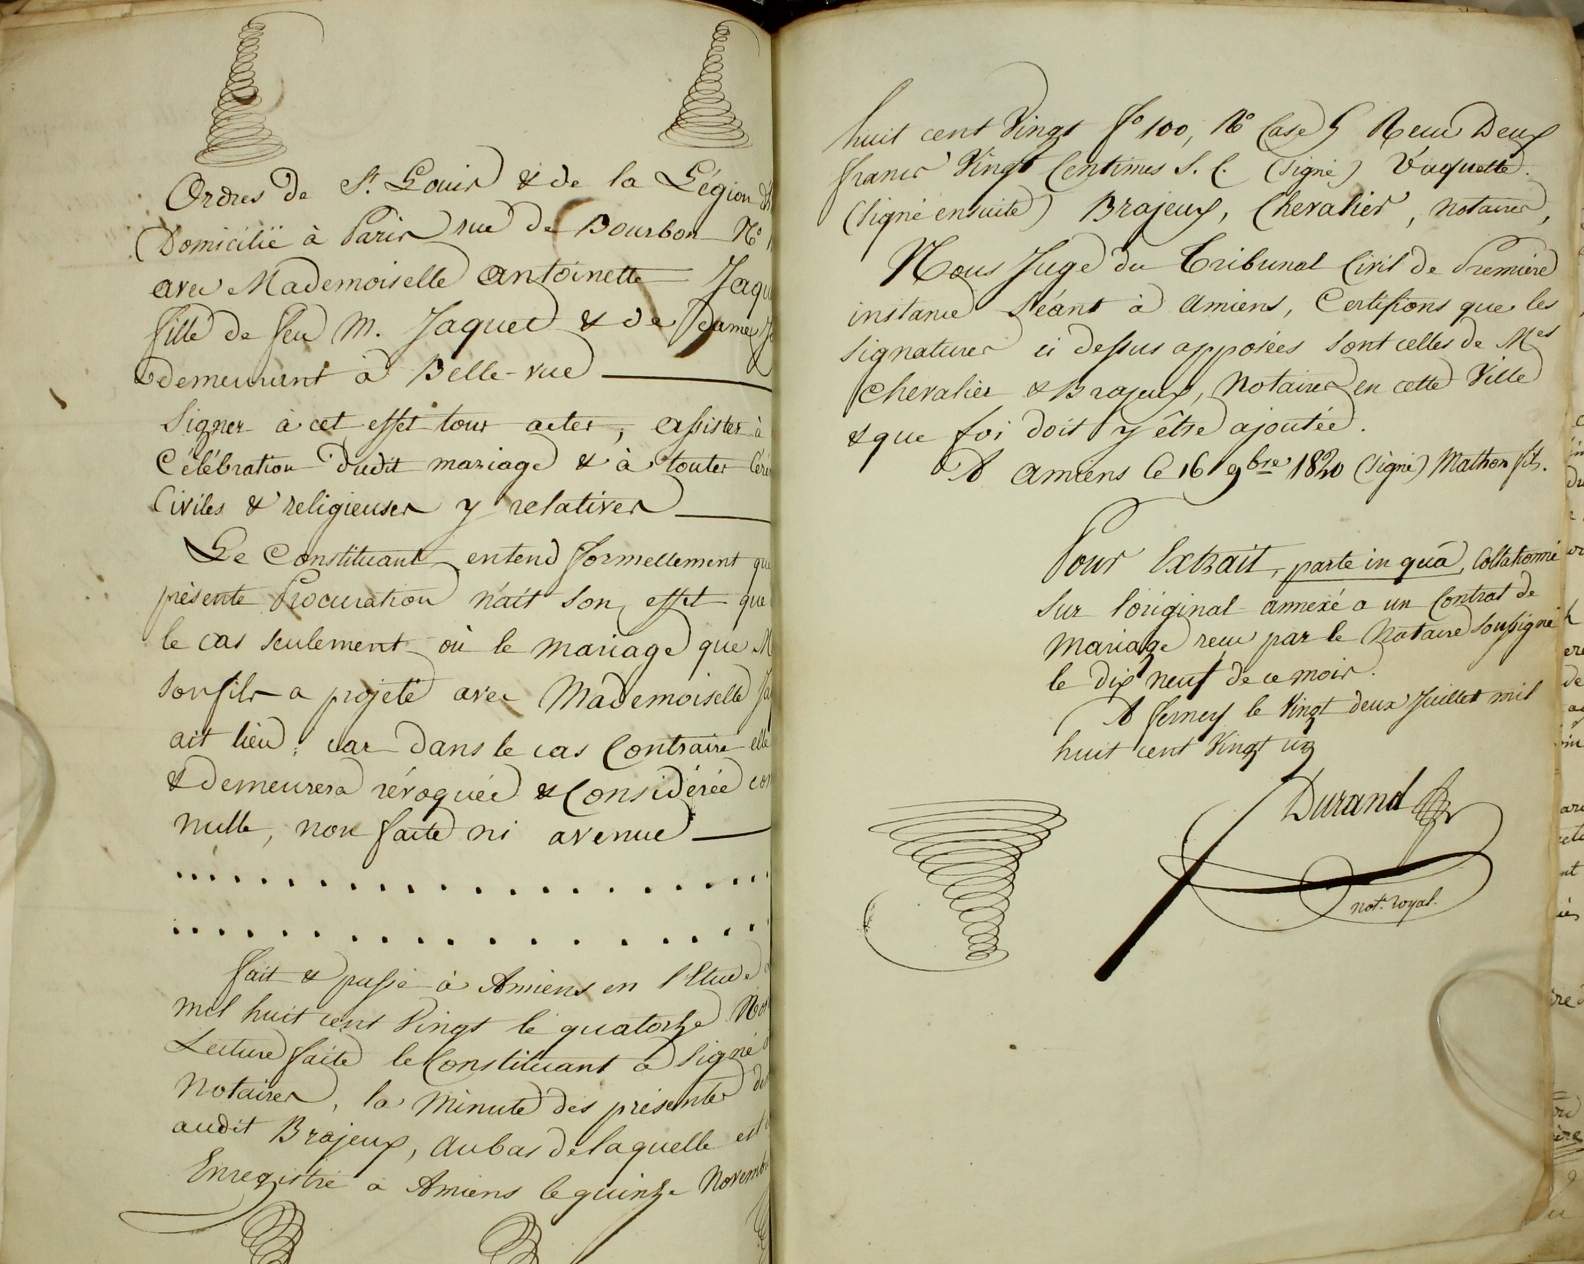 Ordres de St. Louis & de la Légion
Domicilié à Paris rue de Bourbon N°
avec Mademoiselle Antoinette Jaqu
fille de feu M. Jaquet & de dame
demeurant à Belle-vue
Signer à cet effet tous actes, assister à
Célébration dudit mariage & à toutes Céré
Civiles & religieuses y relatives
Le Constituant entend formellement que
présente Procuration n'ait son effet que
le cas seulement où le mariage que M
son fils a projeté avec Mademoiselle Ja
ait lieu; car dans le cas Contraire elle
& demeurera révoquée & Considérée com
nulle, non faite ni avenue
fait & passé à Amiens en l'Etude
mil huit cent Vingt le quatorze No
Lecture faite le Constituant a Signé
Notaires, la Minute des présentes
audit Brajeux, au bas de laquelle est
Enregistré à Amiens le quinze Novemb
huit cent Vingt f° 100, R° Case 5 Reçu Deux
francs Vingt Centimes S. C. (signé) Vaquette.
(signé ensuite) Brajeux, Chevalier, notaires,
Nous Juge du Tribunal Civil de Première
instance Séant à Amiens, Certifions que les
signatures ci dessus apposées sont celles de Mes
Chevalier & Brajeux, Notaires en cette Ville
& que foi doit y être ajoutée.
A Amiens le 16 9bre 1820 (signé) Mathon fils.
Pour Extrait, parte in quâ, Collationné
sur l'original annexé a un Contrat de
Mariage recu par le Notaire soussigné
le dix neuf de ce mois.
A ferney le Vingt deux Juillet mil
huit cent Vingt un
Durand
not. royal.